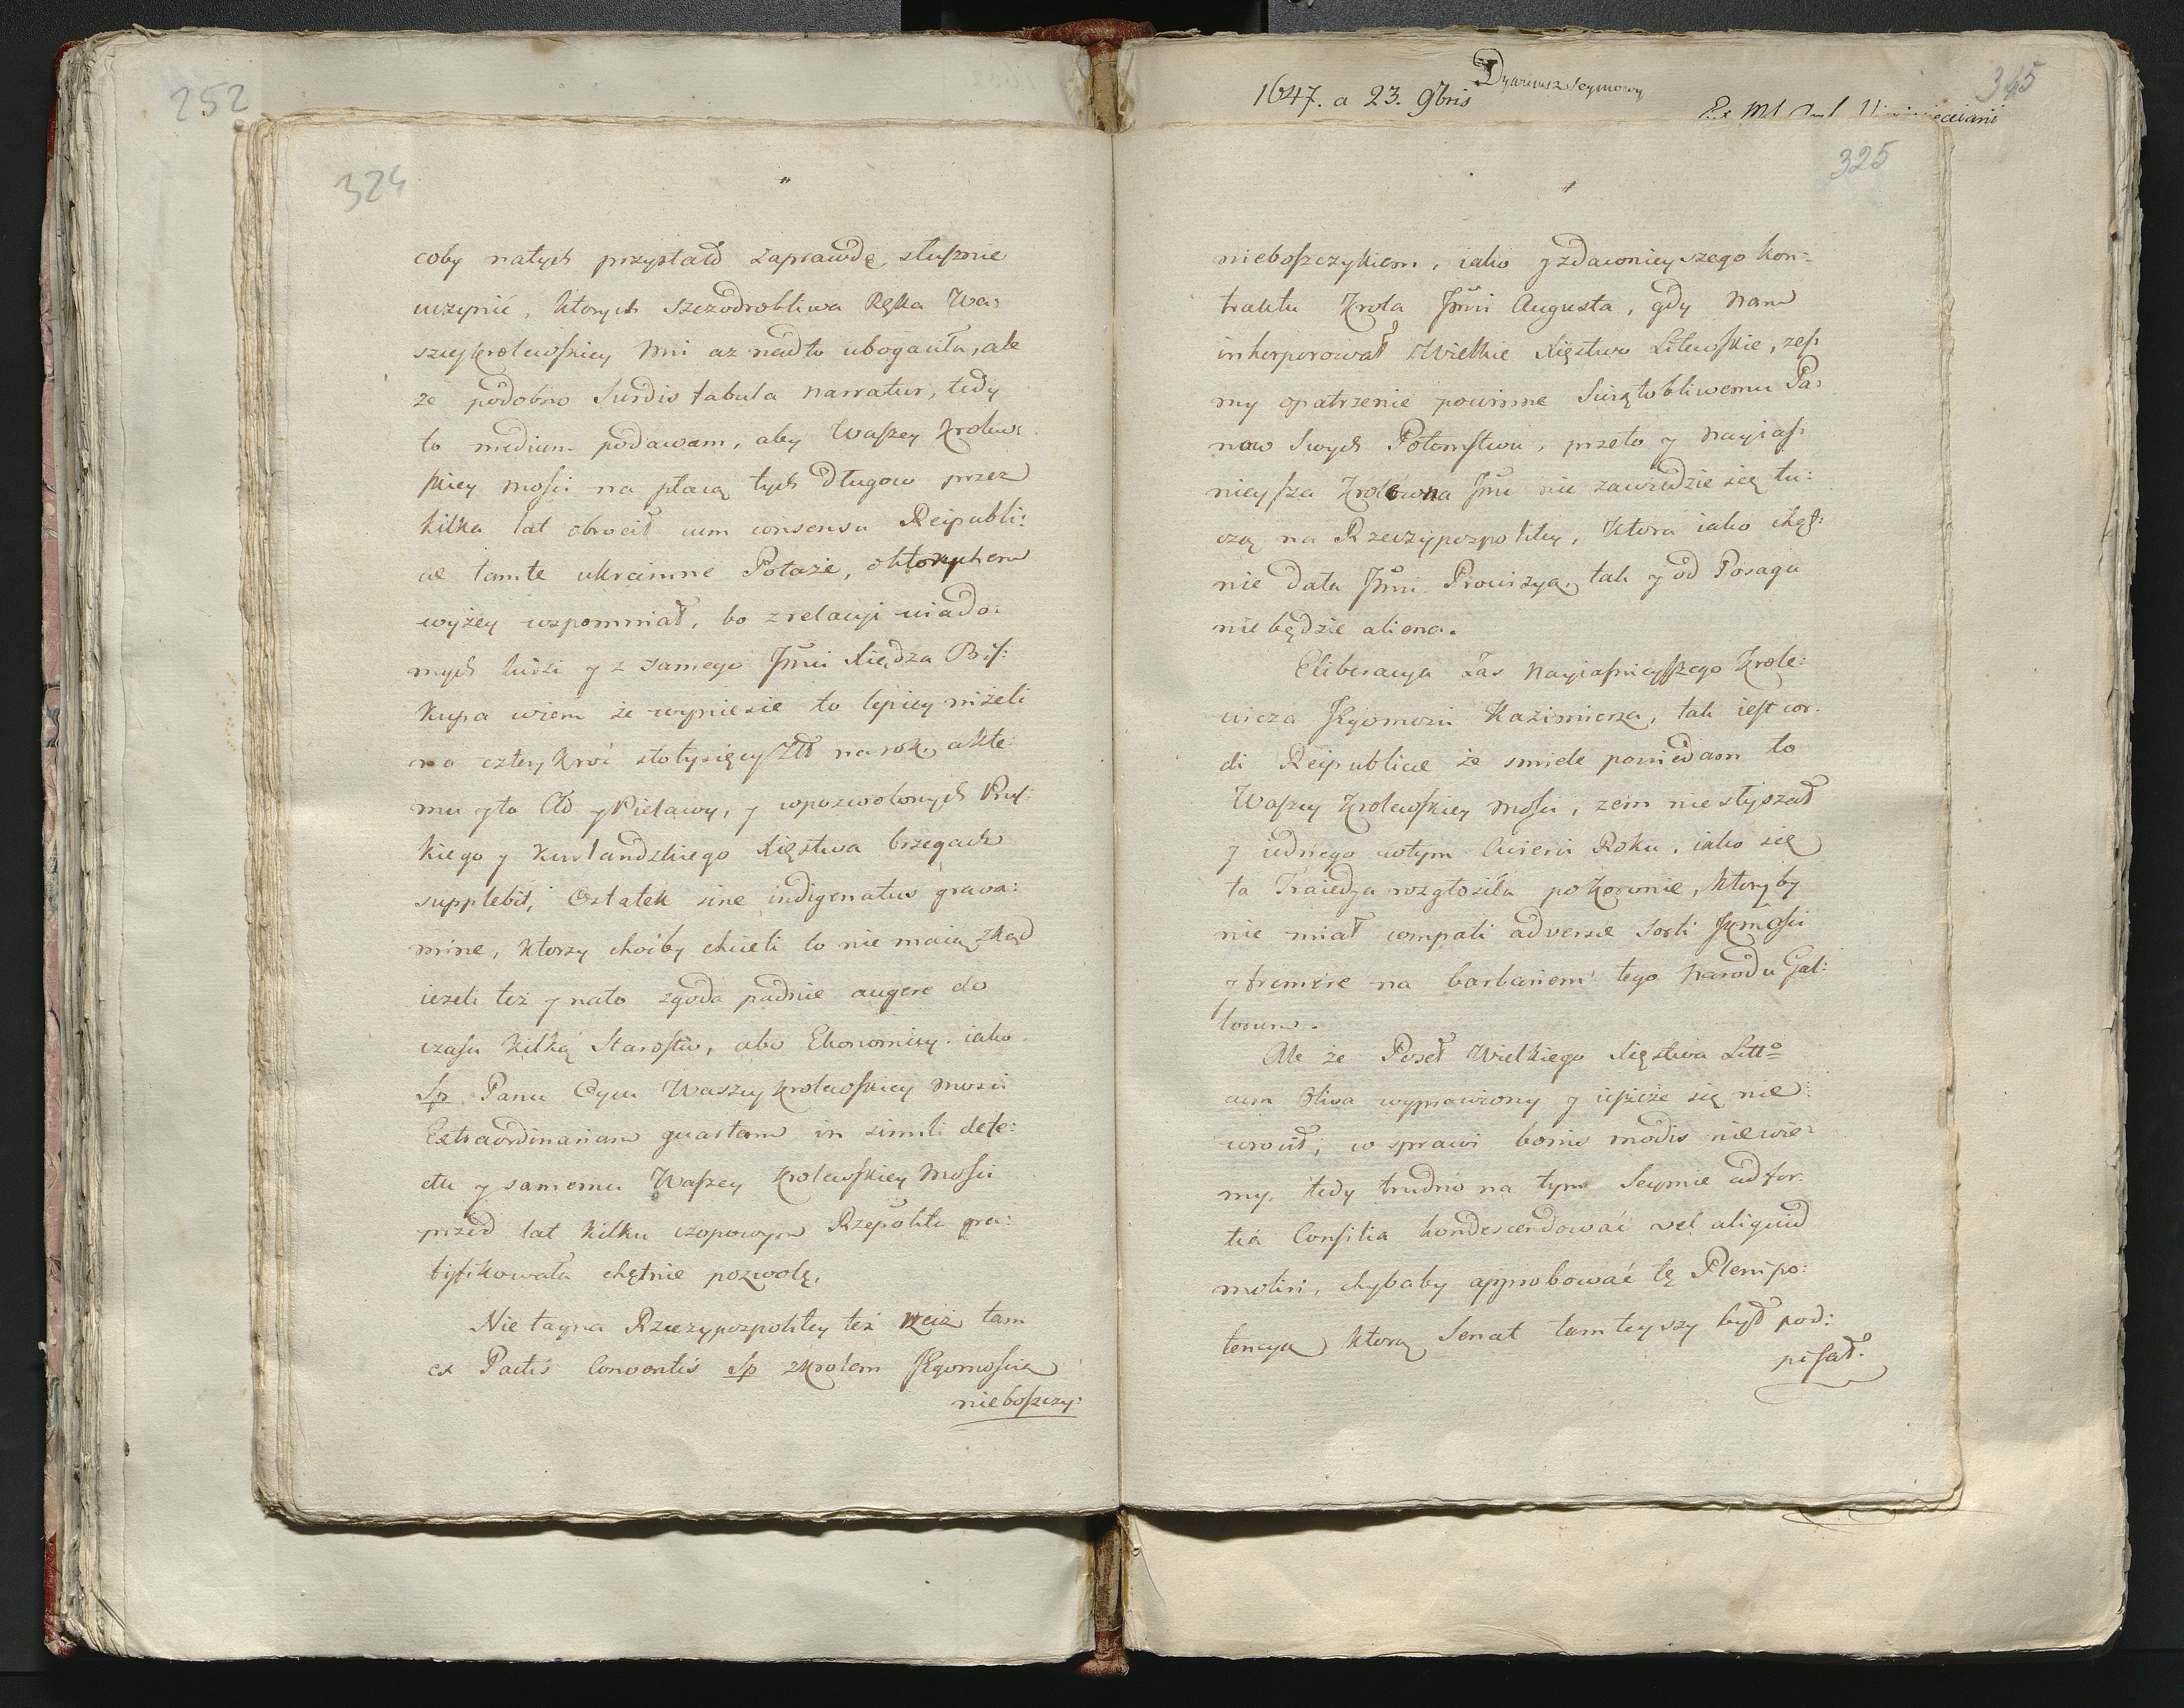 252
324
coby natych przystało zaprawdę słusznie
uczynić, ktorych szczodrobliwa Ręka Wa:
szey krolewskiey Mci aż nadto ubogaciła, ale
że podobno Surdis fabula narratur, tedy
to medium podawam, aby Waszey krolew:
skiey Mości na płacą tych długow przez
kilka lat obrocił cum consensu Reipubli:
cæ tamte ukrainne Potaże, oktorychem
wyżey wspomniał, bo z relacyi wiado:
mych ludzi y z samego Jmci Xiędza Bis:
kupa wiem że wyniesie to lepiey niżeli
na cztery kroć stotysięcy Zł na rok, akte:
mu y to Cło y Pielawy, y wpozwolonych Prus:
kiego y Kurlandzkiego Xięstwa brzegach
supplebit, Ostatek sine indigenatus grava:
mine, ktorzy choćby chcieli to nie maią zkąd
ieżeli też y nato zgoda padnie augere do
czasu kilką Starostw, abo Ekonomiey iako
Sp Panu Oycu Waszey krolewskiey Mosci
Extraordinariam quartam in simili defe:
ctu y samemu Waszey krolewskiey Mości
przed lat kilku czopowym Rzepolita gra:
tyfikowała chętnie pozwolę,
Nie tayna Rzeczypospolitey też rzecz tam
ex Pactis Conventis Sp zkrolem JKgomoscią
nieboszczy:
1647. a 23. 9bris
Dyariusz Seymowy
345
325
nieboszczykiem, iako y zdawnieyszego kon:
traktu Krola Jmci Augusta, gdy nam
inkorporował Wielkie Xięstwo Litewskie, zes
my opatrzenie powinne Swiętobliwemu Pa:
now swych Potomstwu, przeto y nayias:
nieysza Krolewna Jmc nie zawiedzie się tu:
czą na Rzeczypospolitey, ktora iako chęt:
nie dała Jmci Prowizyą, tak y od Posagu
nie będzie aliena.
Eliberacya zas Nayiasnieyszego Krole:
wicza JKgomości Kazimierza, tak iest cor:
di Reipublicæ że smiele powiedam to
Waszey Krolewskiey Mości, żem nie słyszał
y iednego wtym Cwierci Roku, iako się
ta Traiedya rozgłosiła po Koronie, ktoryby
nie miał compati adversæ sorti JKmości
y fremere na barbariem tego Narodu Gal:
lorum.
Ale że Poseł Wielkiego Xięstwa Litto
cum Oliva wyprawiony y ieszcze się nie
wrocił, w sprawi bonis modis niewie:
my, tedy trudno na tym Seymie ad for:
tia Consilia kondescendować vel aliquid
moliri, chybaby approbować tę Plenipo:
tencyą ktorą Senat tamteyszy był pod:
pisał.